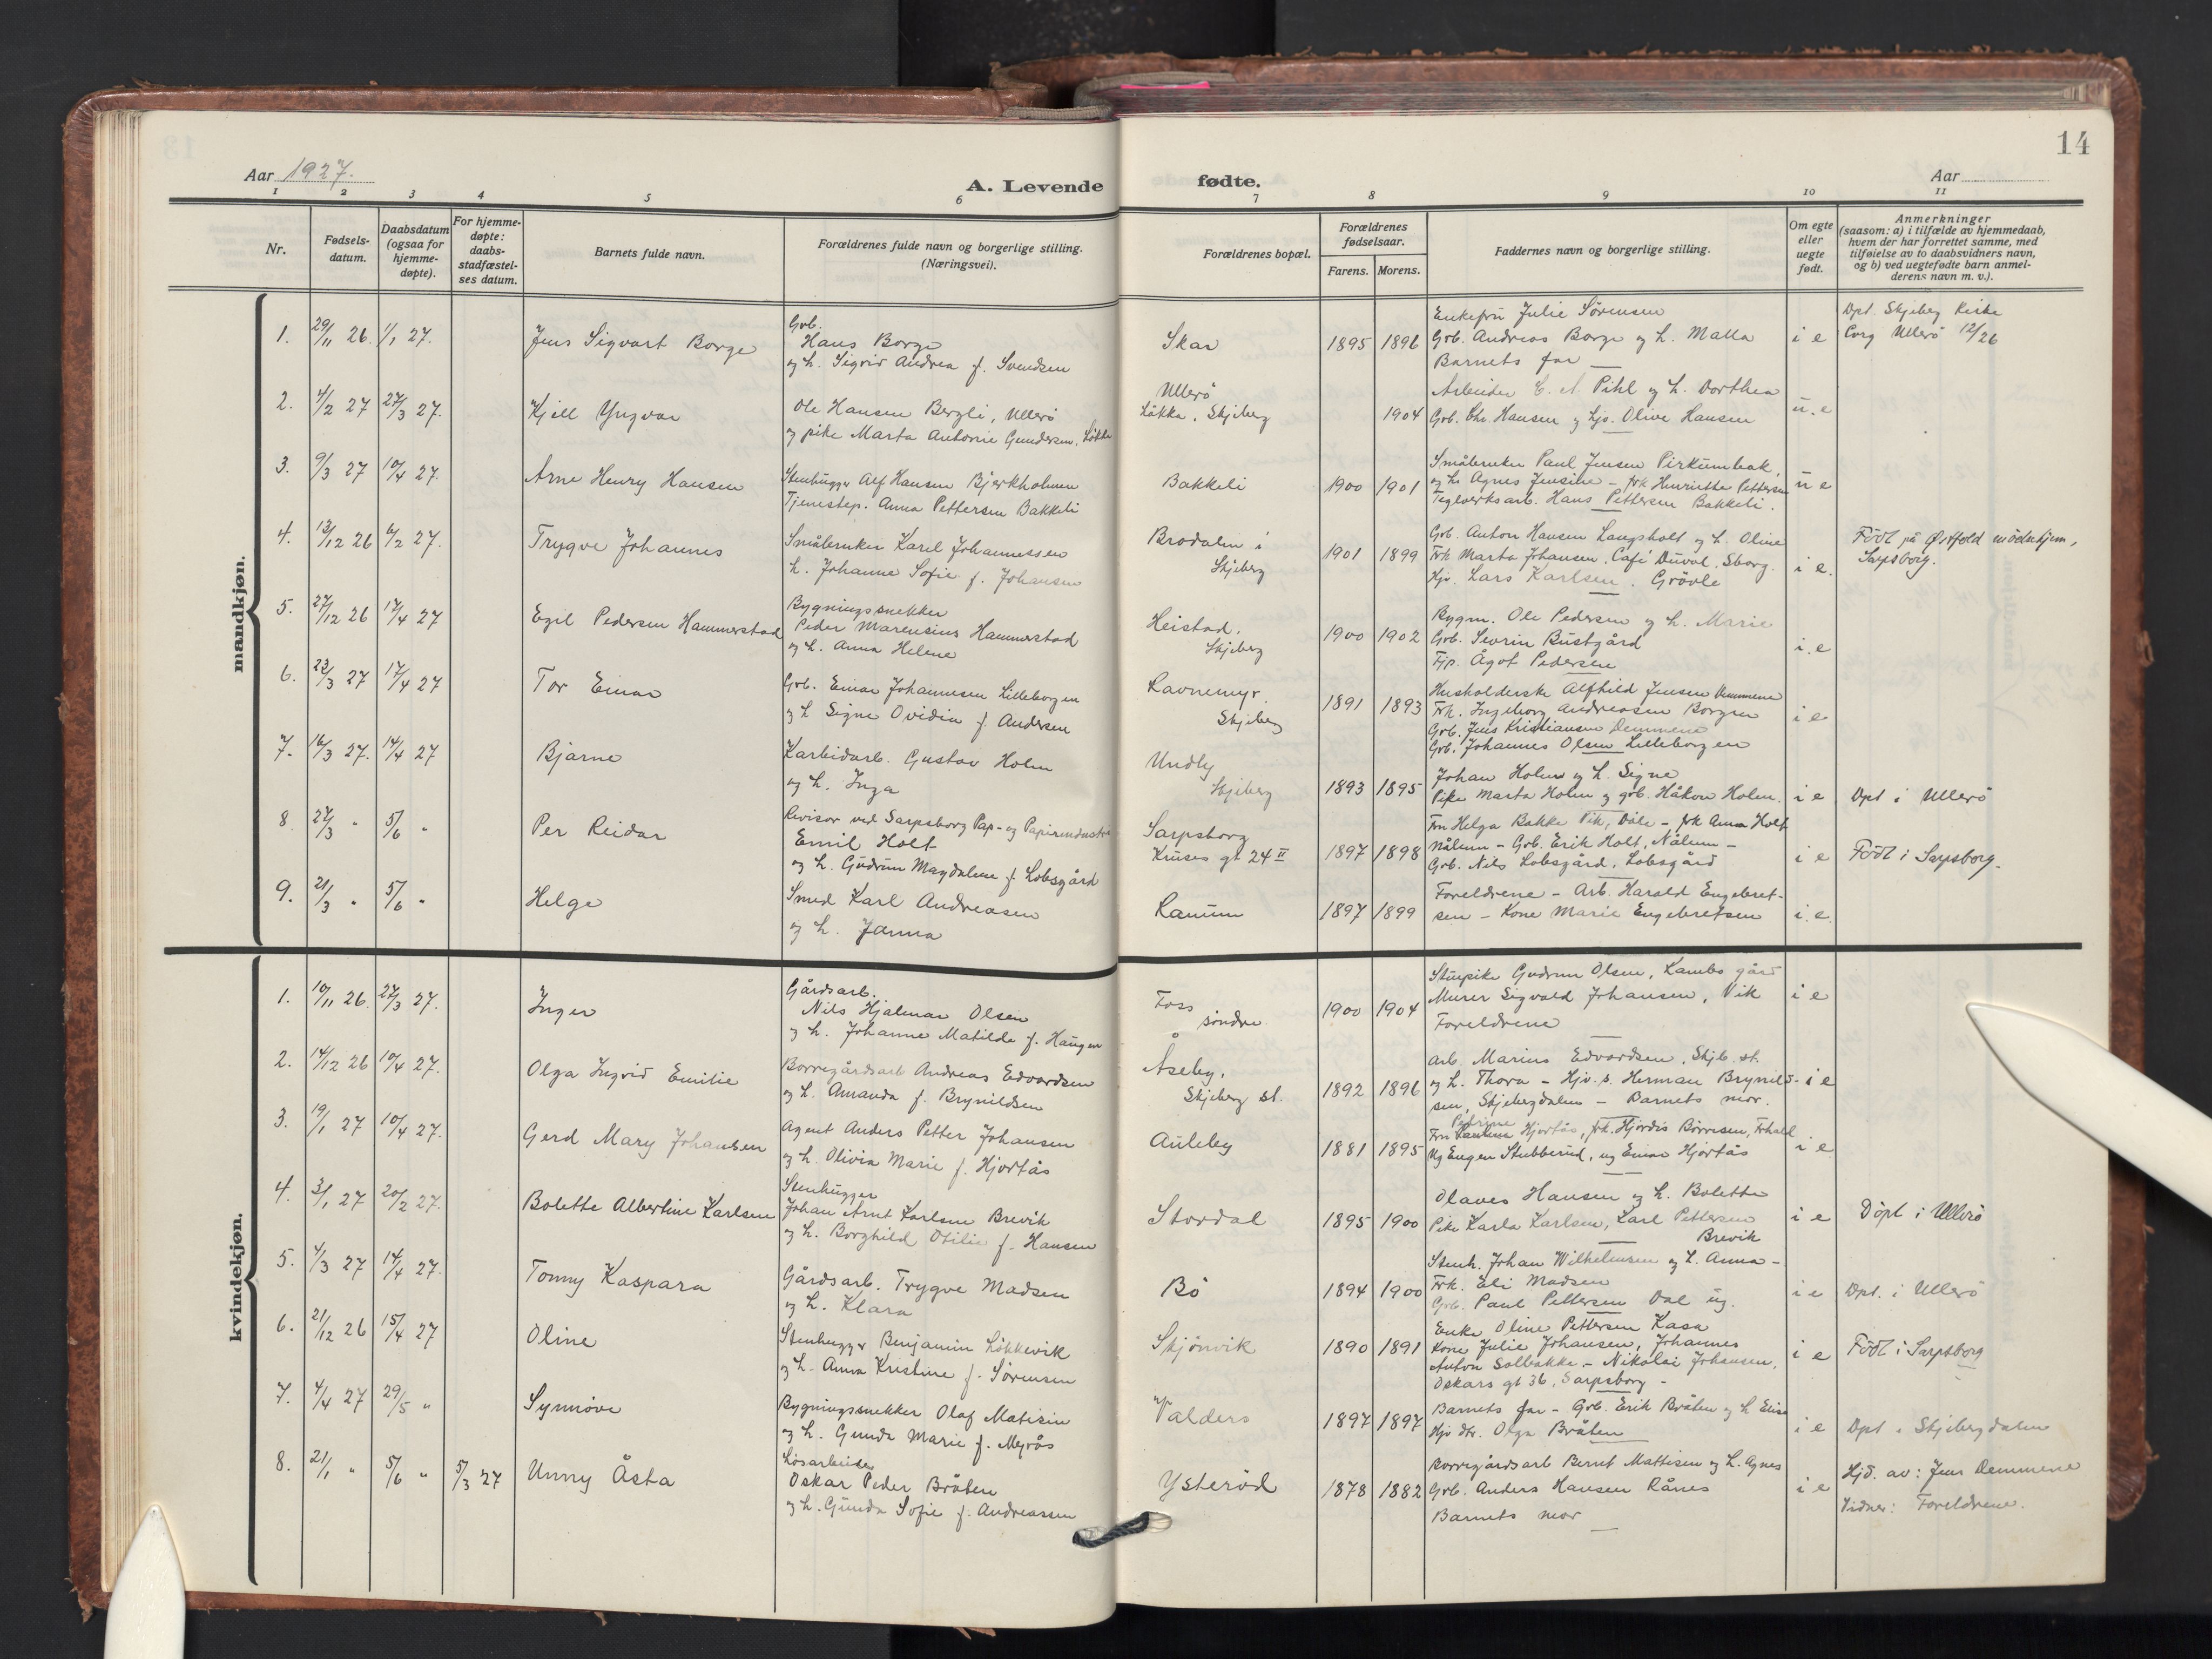 14
Aar 1927.
A. Levende fødte.
Aar
1 2 3 4 5 6 7 8 9 10 11
Nr.
Fødsels-datum.
Daabsdatum (ogsaa for hjemme-døpte).
For hjemme-døpte: daabs-stadfæstel-ses datum.
Barnets fulde navn.
Forældrenes fulde navn og borgerlige stilling. (Næringsvei).
Forældrenes bopæl.
Forældrenes fødselsaar.
Farens. Morens.
Faddernes navn og borgerlige stilling.
Om egte eller uegte født.
Anmerkninger
(saasom: a) i tilfælde av hjemmedaab,
hvem der har forrettet samme, med
tilføielse av to daabsvidners navn,
og b) ved uegtefødte barn anmel-
derens navn m. v.).
mandkjøn.
1. 29/11 26. 1/1 27. Jens Sigvart Borge
Grb.
Hans Borge
og h. Sigrid Andrea f. Svendsen
Skar
1895 1896
Enkefru Julie Sørensen
Grb. Andreas Borge og h. Malla
Barnets far
i e
Dpt. Skjeberg kirke
Ullerö 12/26
2. 4/2 27 27/3 27. Kjell Yngvar
Ole Hansen Bergli, Ullerö
og pike Marta Antonie Gundersen, Løkka
Ullerö
Løkka, Skjeberg
1904
Arbeider C. A. Pihl og h. Dorthea
Grb. Chr. Hansen og hjv. Olive Hansen
u. e
3. 9/3 27 10/4 27. Arne Henry Hansen
Stenhugger Alf Hansen Bjerkholmen
Tjenestep. Anna Pettersen Bakkeli
Bakkeli
1900 1901
Småbruker Paul Jensen Pirkumbak,
og h. Agnes Jensine - frk Henriette Pettersen
Teglverksarb. Hans Pettersen Bakkeli.
u e
4. 13/12 26 6/2 27. Trygve Johannes
Småbruker Karel Johannessen
h. Johanne Sofie f. Johansen
Brodalen i
Skjeberg
1901 1899
Grb. Anton Hansen Langsholt og h. Oline
Frk Marta Johansen, Café Duval, Sborg.
Hjv. Lars Karlsen, Grövle
i e.
Född på Østfold mödrehjem,
Sarpsborg.
5. 27/12 26 17/4 27 Egil Pedersen Hammerstad
Bygningssnekker
Peder Marensius Hammerstad
og h. Anna Helene
Heistad,
Skjeberg
1900 1902
Bygm. Ole Pedersen og h. Marie
Grb. Severin Bustgård
Tjp. Ågot Pedersen
i. e
6. 23/3 27 17/4 27 Tor Einar
Grb. Einar Johannesen Lilleborgen
og h Signe Ovidia f. Andersen
Ravnemyr,
Skjeberg
1891 1893
Husholderske Alfhild Jensen Demmene
Frk. Ingeborg Andreasen Borgen
Grb. Jens Kristiansen Demmene
Grb. Johannes Olsen Lilleborgen
i e
7. 16/3 27. 14/4 27 Bjarne
Karbidarb. Gustav Holm
og h. Inga
Undly
Skjeberg
1893 1895
Johan Holm og h. Signe
Pike Marta Holm og grb. Håkon Holm.
i e
Dpt i Ullerö
8 22/3 " 5/6 " Per Reidar
Revisor ved Sarpsborg Pap- og Papirindustri
Emil Holt
og h. Gudrun Magdalene f. Lobsgård
Sarpsborg
Kruses gt 24 II
1897 1898
Fru Helga Bakke Vik, Dale - frk Anna Holt
Nålum - Grb. Erik Holt, Nålum -
Grb. Nils Lobsgård, Lobsgård
i e
Född i Sarpsborg.
9. 21/3 " 5/6 " Helge
Smed Karl Andreasen
og h. Janna
Ranum
1897 1899
Foreldrene - Arb. Harald Engebret-
sen - Kone Marie Engebretsen
i. e.
kvindekjøn.
1. 10/11 26. 27/3 27. Inger
Gårdsarb.
Nils Hjalmar Olsen
og h. Johanne Matilde f. Haugen
Foss
söndre
1900 1904
Stuepike Gudrun Olsen, Kambo gård
Murer Sigvald Johansen, Vik
Foreldrene
i e
2. 14/12 26 10/4 27. Olga Ingrid Emilie
Borregårdsarb Andreas Edvardsen
og h. Amanda f. Brynildsen
Åseby,
Skjeberg st.
1892 1896
Arb. Marius Edvardsen, Skjb. st.
og h. Thora - Hjv. s. Herman Brynild-
sen, Skjebergdalen - Barnets mor.
i e
3. 19/1 27 10/4 27. Gerd Mary Johansen
Agent Anders Petter Johansen
og h. Olivia Marie f. Hjortås
Auleby
1881 1895
Petrine
Fru Hjortås, frk. Hjördis Börresen,
Ug Eugen Stubberud, ug Einar Hjortås
i e
4. 3/1 27 20/2 27. Bolette Albertine Karlsen
Stenhugger
Johan Arnt Karlsen Brevik
og h. Borghild Otilie f. Hansen
Stordal
1895 1900
Olaves Hansen og h. Bolette
Pike Karla Karlsen, Karl Pettersen
Brevik
i e
Döpt i Ullerö
5. 4/3 27 14/4 27. Tonny Kaspara
Gårdsarb. Trygve Madsen
og h. Klara
Bö
1894 1900
Stenh. Johan Wilhelmsen og h. Anna -
Frk. Eli Madsen
Grb. Paul Pettersen Dal ug.
i e
Dpt. i Ullerö
6. 21/12 26 15/4 27 Oline
Stenhugger Benjamin Løkkevik
og h. Anna Kristine f. Sörensen
Skjönvik
1890 1891
Enke Oline Pettersen Kasa
Kone Julie Johansen, Johannes
Anton Solbakke - Nikolai Johansen,
Oskars gt 36, Sarpsborg -
i e
Född i Sarpsborg
7. 4/4 27 29/5 " Synnöve
Bygningssnekker Olaf Matisen
og h. Gunda Marie f. Myrås
Valders
1897 1897
Barnets far - Grb. Erik Bråten og h Elise
Hjv dtr. Olga Bråten
i e
Dpt i Skjebergdalen
8. 21/1 " 5/6 " 5/3 27 Unny Åsta
Lösarbeider
Oskar Peder Bråten
og h. Gunda Sofie f. Andreassen
Ysteröd
1878 1882
Borregårdsarb Bernt Mattisen og h. Agnes
Grb. Anders Hansen Rånes
Barnets mor
i e
Hjd. av: Jens Demmene
Vidner: Foreldrene.